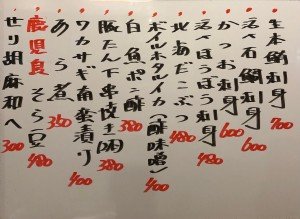 生本鮪刺身 700
活〆石鯛刺身 600
かつお刺身 600
活〆ほうぼう刺身 480
北海だこぶつ 480
ボイルホタルイカ(酢味噌) 400
白魚ポン酢
豚たん下串焼き 380
ワカサギ南蛮漬け 400
あら煮 380
鹿児島そら豆 480
せり胡麻和へ 300